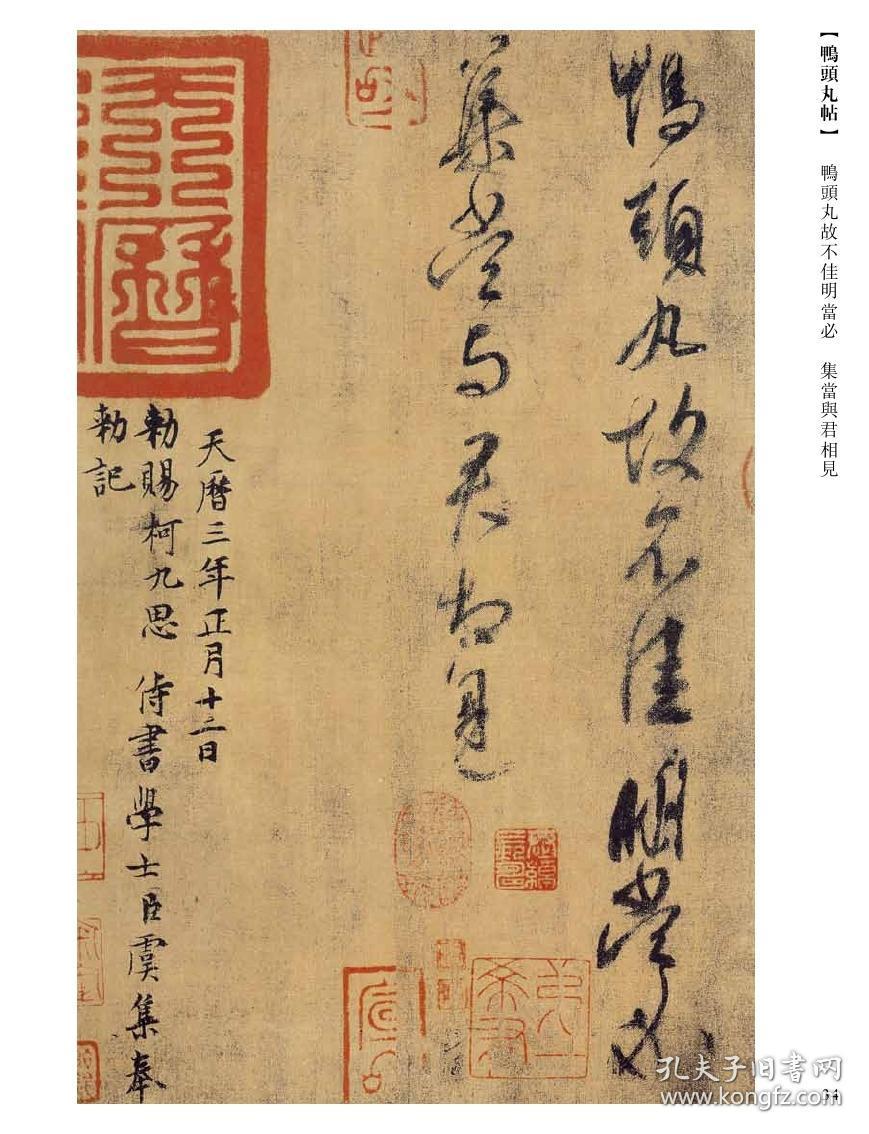 【鴨頭丸帖】 鴨頭丸故不佳明當必 集當與君相見
鴨頭丸故不佳明當必
集當與君相見
天曆三年正月十二日
勑賜柯九思 侍書學士臣虞集奉
勑記
孔夫子旧书网
www.kongfz.com
34